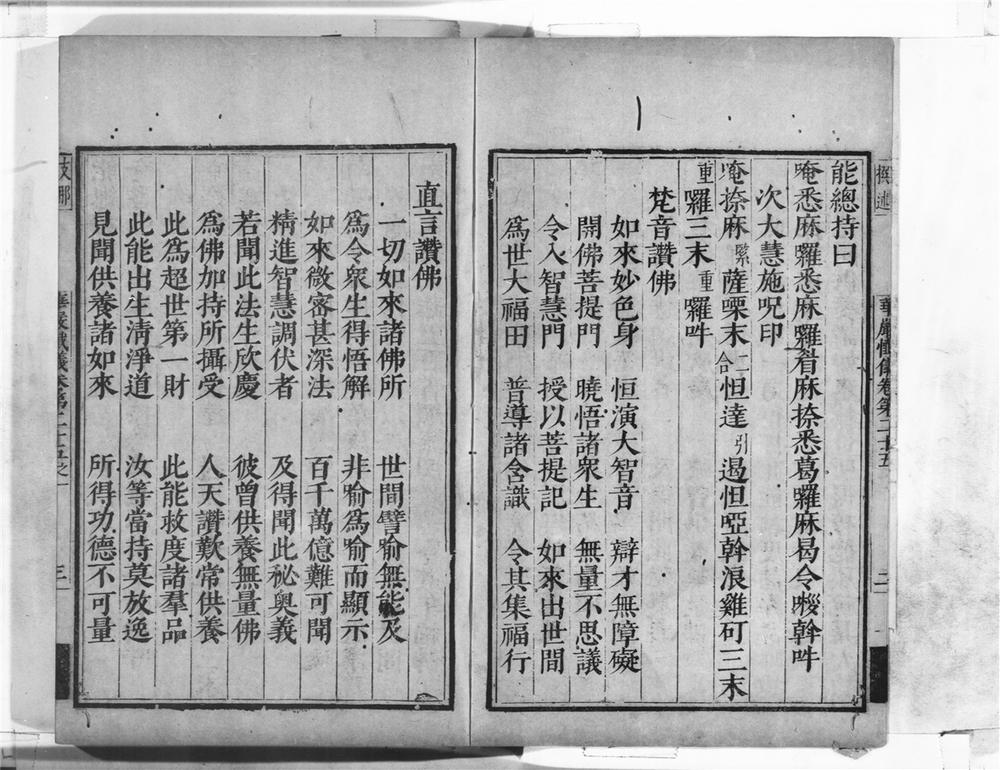 能總持曰
唵悉麻囉悉麻囉㫺麻捺悉葛囉麻曷令㗚幹吽
次大慧施呪印
唵捺麻緊薩㗚末二合怛達引遏怛啞幹浪雞矴三末
重囉三末重囉吽
梵音讚佛
如來妙色身 恒演大智音 辯才無障礙
開佛菩提門 曉悟諸衆生 無量不思議
令入智慧門 授以菩提記 如來出世間
為世大福田 普導諸含識 令其集福行
直言讚佛
一切如來諸佛所 世間譬喻無能及
為令衆生得悟解 非喻為喻而顯示
如來微密甚深法 百千萬億難可聞
精進智慧調伏者 及得聞此祕奧義
若聞此法生欣慶 彼曾供養無量佛
為佛加持所攝受 人天讚歎常供養
此為超世第一財 此能救度諸羣品
此能出生清淨道 汝等當持莫放逸
見聞供養諸如來 所得功德不可量
華嚴懺儀卷第二十五
二
三